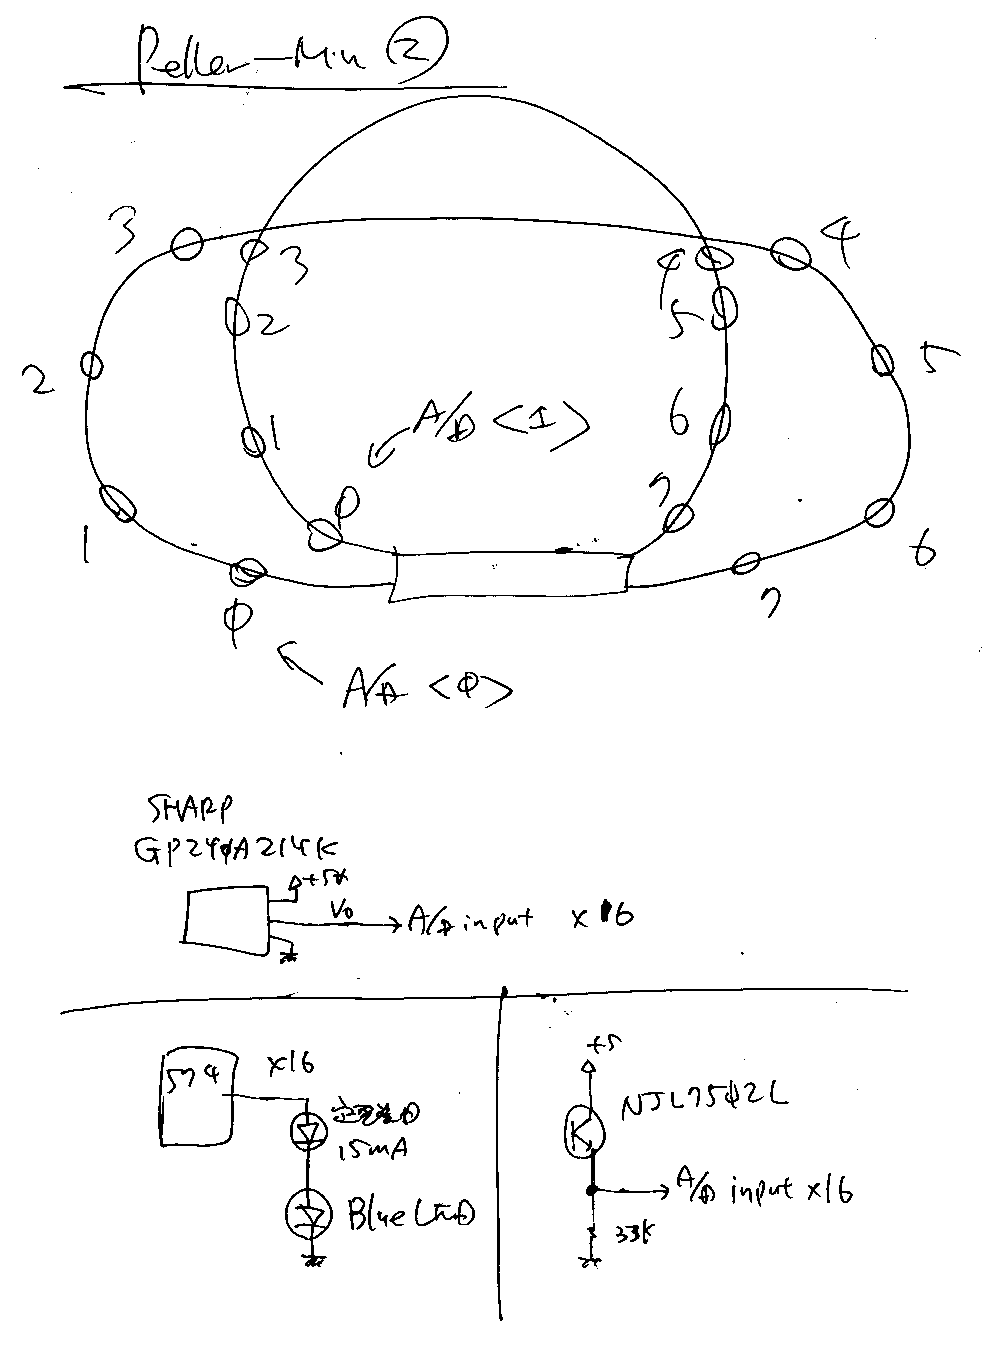 Peller-Min ②
3
3
4
4
2
5
5
2
A/D <1>
6
1
1
0
7
6
0
7
A/D <0>
SHARP
GP2Y0A21YK
+5V
Vo
A/D input ×16
574
×16
定電流D
15mA
Blue LED
+5
NJL7502L
A/D input ×16
33K